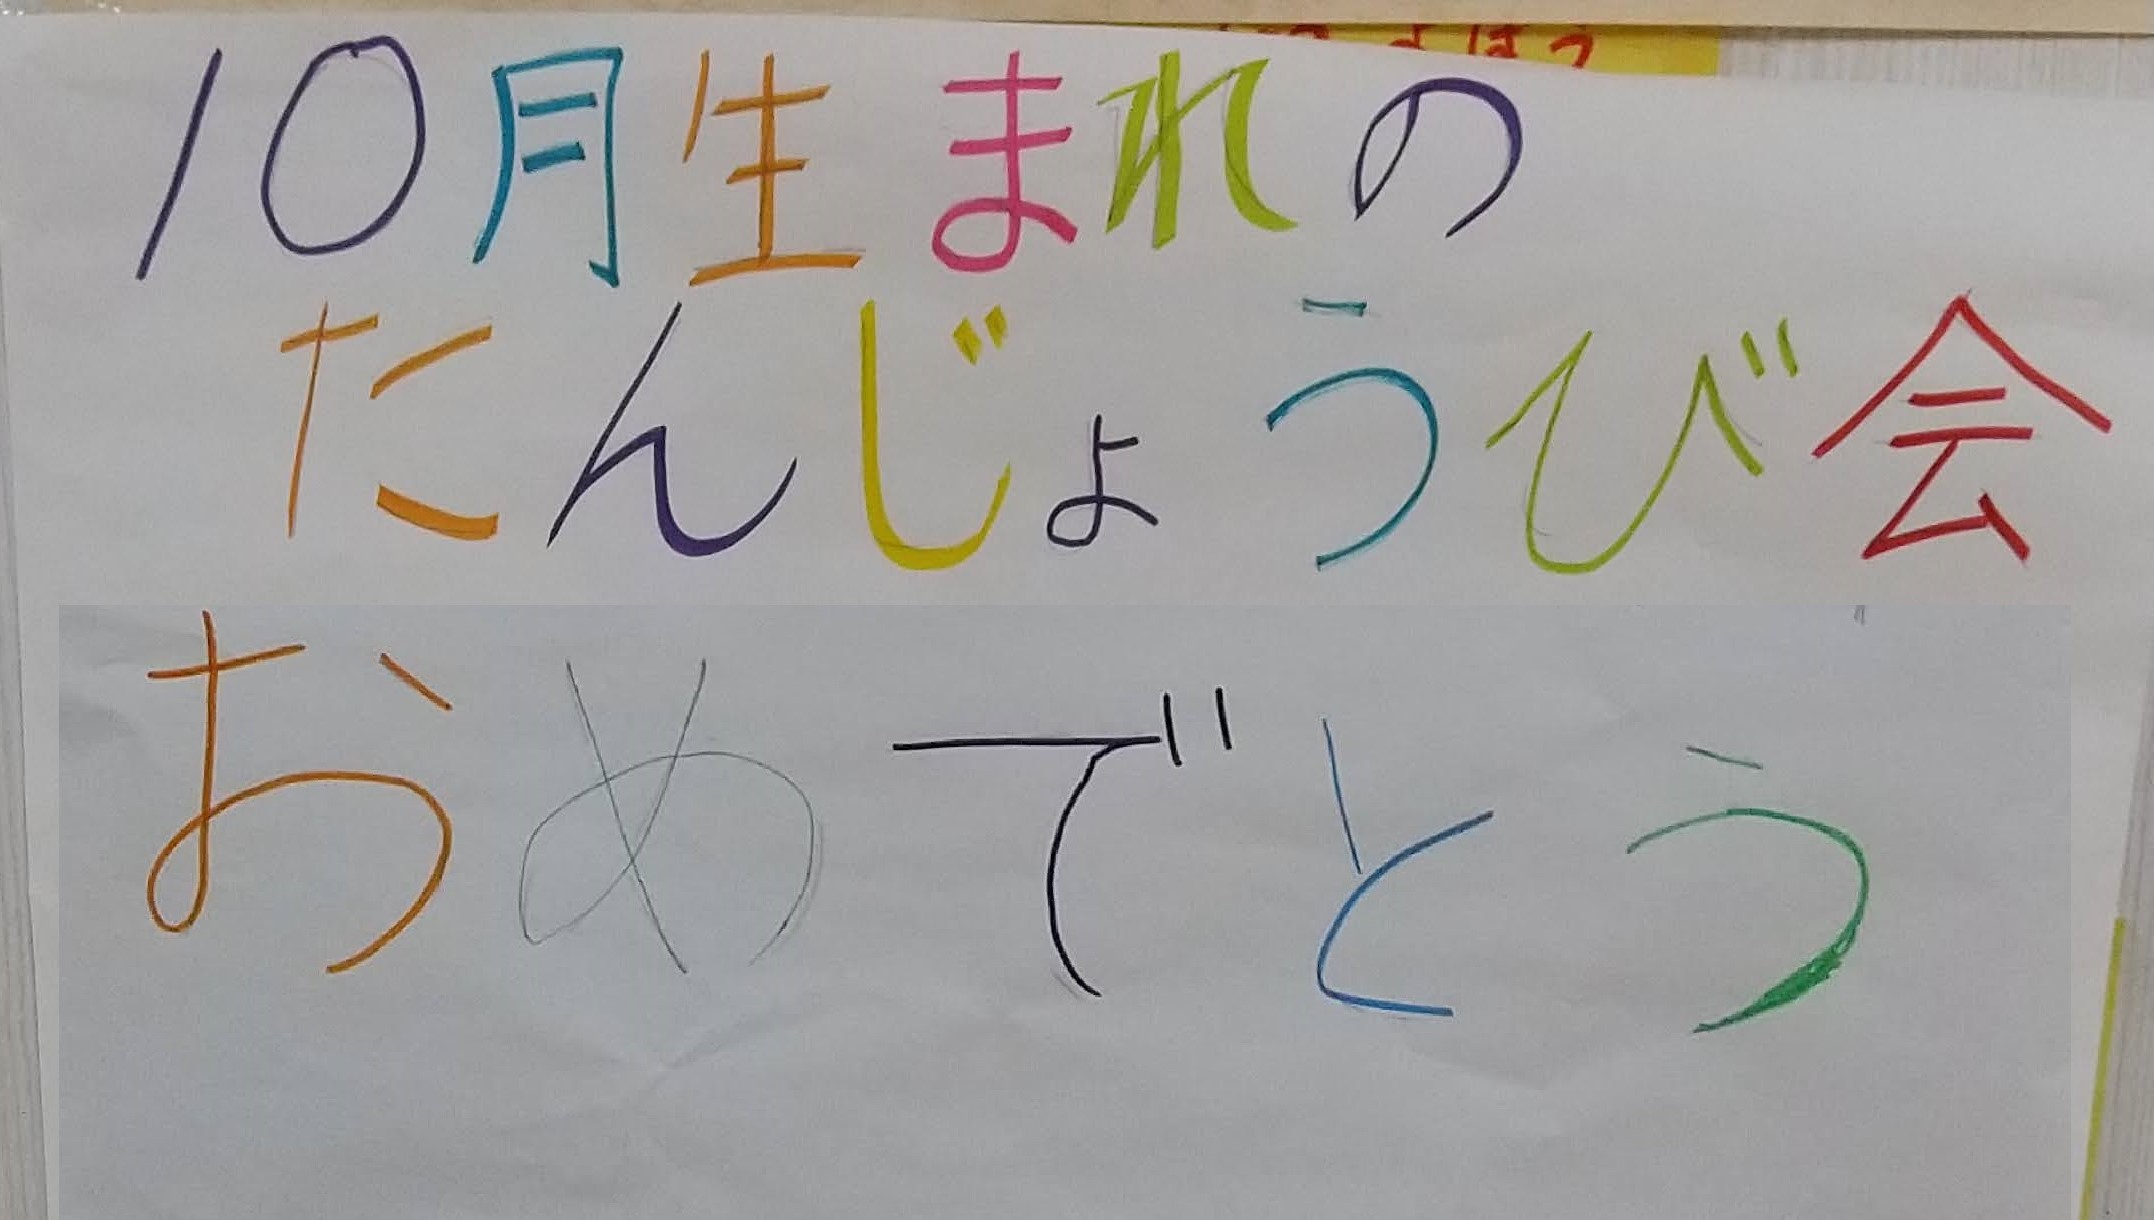 10月生まれの
たんじょうび会
おめでとう